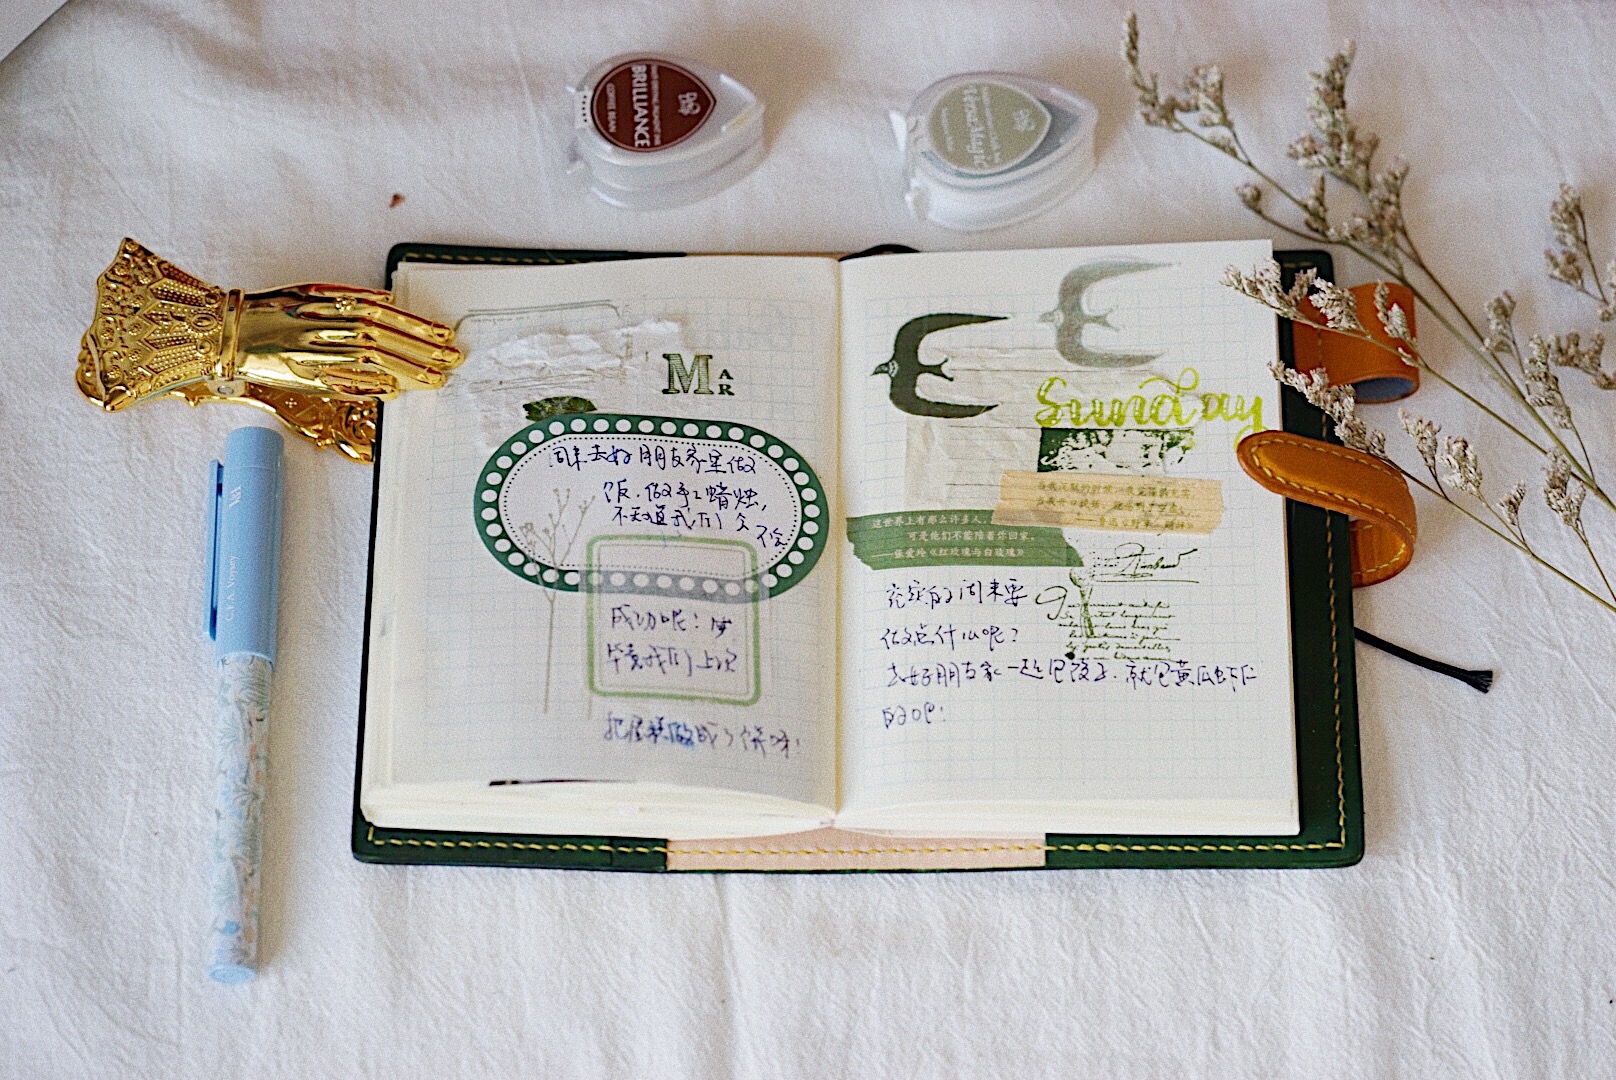 BRILLIANCE
COFFEE BEAN
VersaMagic
MAR
周末去好朋友家里做
饭.做手工蜡烛,
不知道我们会
不会
成功呢?
毕竟我们上次
把蛋糕做成了
Sunday
这世界上有那么许多人,
可是他们不能陪着你回家。
——张爱玲《红玫瑰与白玫瑰》
当我沉默的时候,我觉得充实,
——鲁迅《野草·题辞》
充实的周末要
做点什么呢?
去好朋友家一起包饺子.就包黄瓜虾仁
的吧!